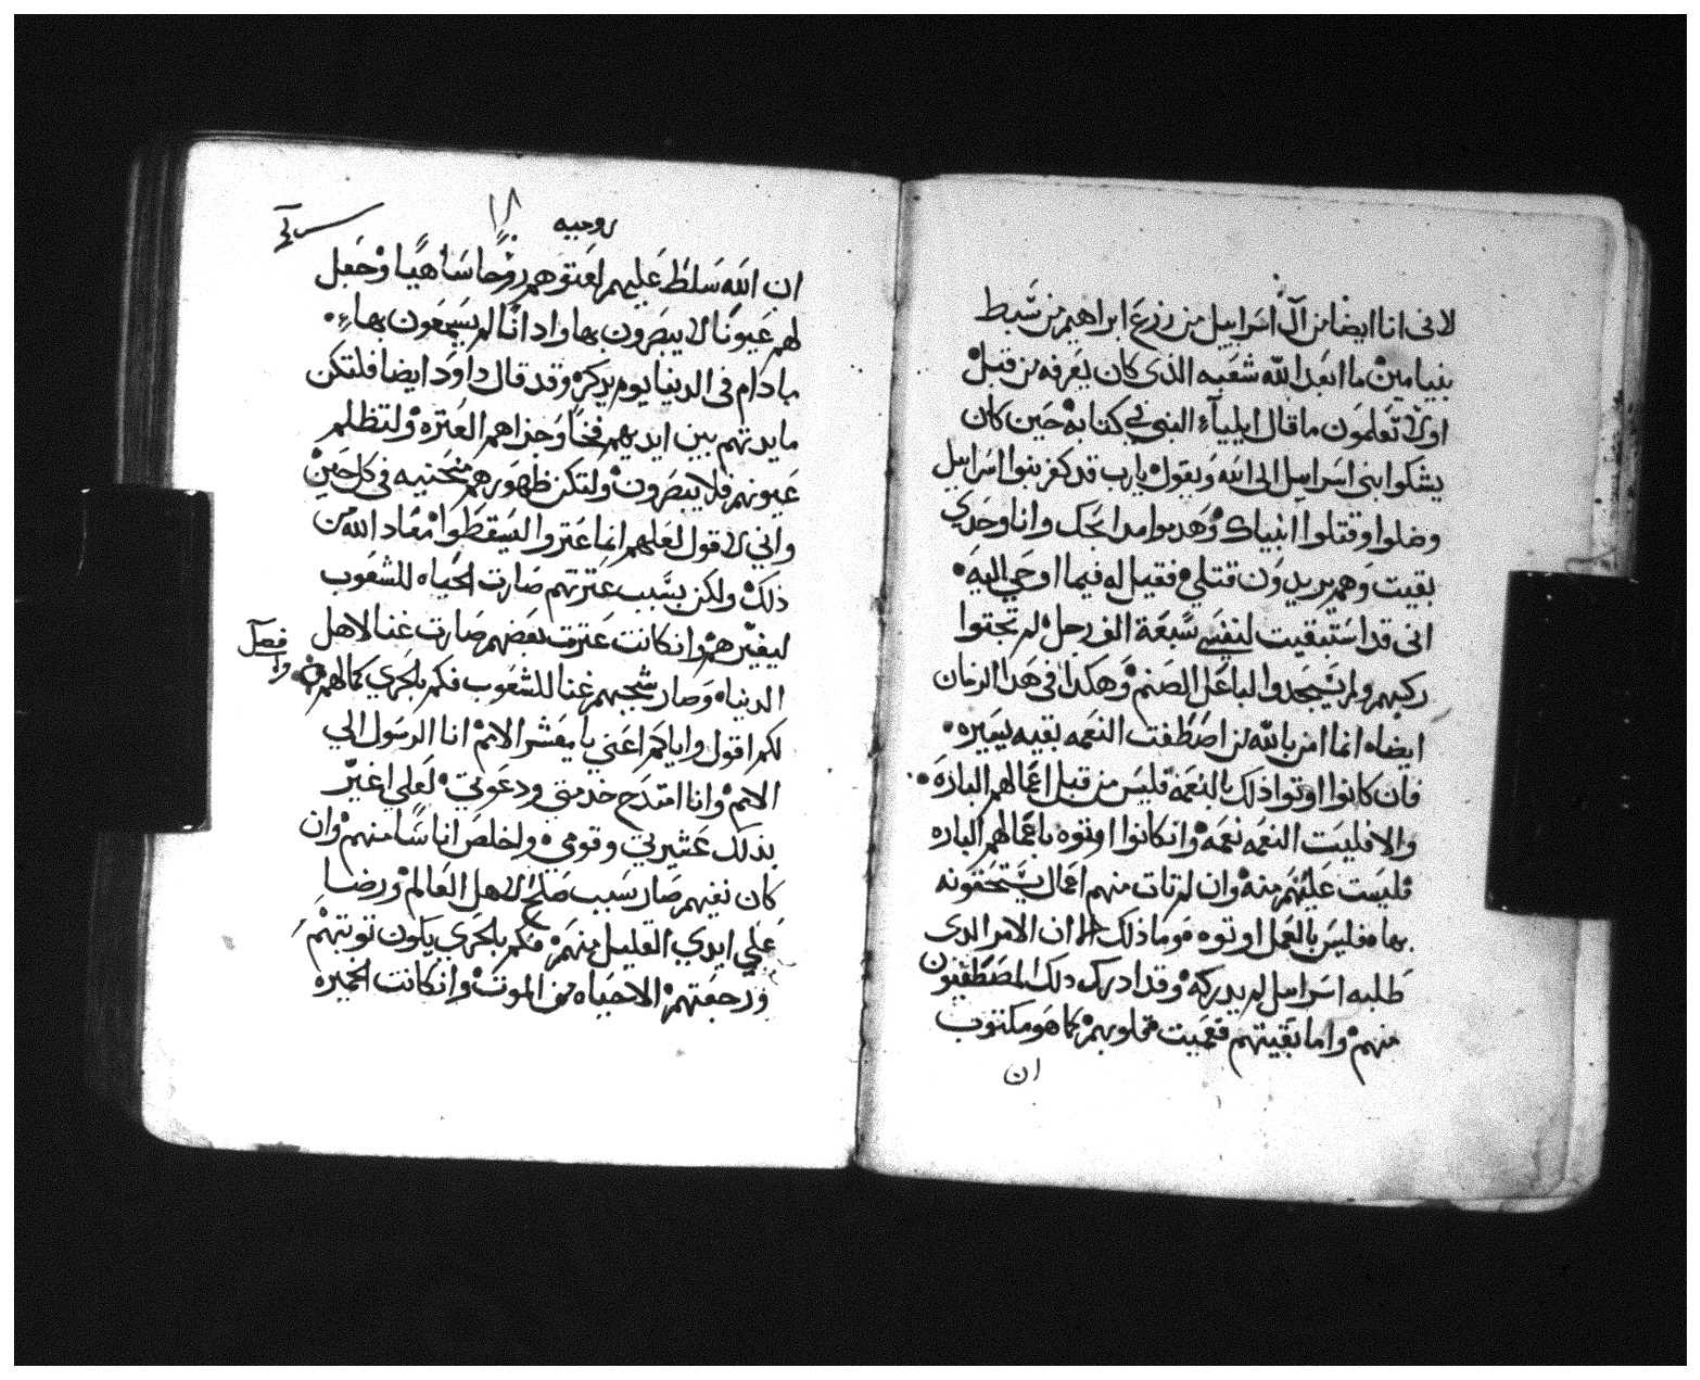 لاني انا ايضا من آل اسراييل من زرع ابراهيم من سبط
بنيامين ما ابعد الله شعبه الذي كان يعرفه من قبل
اولا تعلمون ما قال ايلياء النبي في كتابه حين كان
يشكوا بني اسراييل الى الله ويقول يارب قد كفر بنوا اسراييل
وضلوا وقتلوا انبياك وهدموا مدابحك وانا وحدي
بقيت وهم يريدون قتلي فقيل له فيما اوحي اليه
اني قد استبقيت لنفسي سبعة الف رجل لم تجتوا
ركبهم ولم يسجدوا لباعل الصنم وهكدا في هدا الزمان
ايضا انما امن بالله من اصطفت النعمه بقيه يسيره
فان كانوا اوتوا ذلك بالنعمة فليس من قبل اعمالهم الباره
والا فليست النعمه نعمه وان كانوا اوتوه باعمالهم الباره
فليست عليهم منه وان لم تات منهم اعمال يستحقونه
بها فليس بالعمل اوتوه وما ذلك الا ان الامر الدي
طلبه اسراييل لم يدركه وقد ادرك دلك المصطفون
منهم واما بقيتهم فعميت قلوبهم كما هو مكتوب
ان
روميه
١٨
ان الله سلط عليهم لعتوهم روحا ساهيا وجعل
لهم عيونا لا يبصرون بها وادانا لم يسمعون بها
مادام في الدنيا يوم يدكر وقد قال داود ايضا فلتكن
مايدتهم بين ايديهم فخا وجزاهم العتره ولتظلم
عيونهم فلا يبصرون ولتكن ظهورهم منحنيه في كل حين
واني لاقول لعلهم انما عتروا ليسقطوا معاد الله من
ذلك ولكن بسبب عترتهم صارت الحياه للشعوب
ليغيرهم وان كانت عترت بعضهم صارت غنا لاهل
الدنيا وصار شجبهم غنا للشعوب فكم بالحري كمالهم
فصل
لكم اقول واياكم اعني يا معشر الامم انا الرسول الي
الامم وانا امتدح خدمتي ودعوتي لعلي اغير
بدلك عشيرتي وقومي واخلص اناسا منهم وان
كان نفيهم صار سبب صلح لاهل العالم ورضا
علي ايدي القليل منهم فكم بالحري يكون توبتهم
ورجعتهم الا حياه من الموت وان كانت الخميره